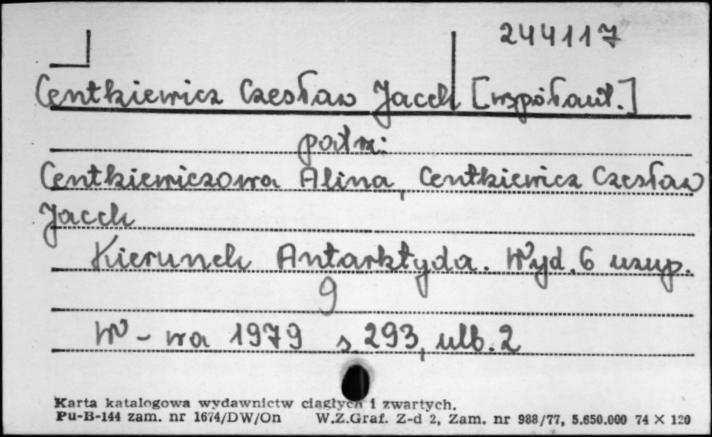 244117
Centkiewicz Czesław Jacek [współaut.]
patrz:
Centkiewiczowa Alina, Centkiewicz Czesław
Jacek
Kierunek Antarktyda. Wyd. 6 uzup.
9
W-wa 1979 s. 293, ulb. 2
Karta katalogowa wydawnictw ciągłych i zwartych.
Pu-B-144 zam. nr 1674/DW/On W.Z.Graf. Z-d 2, Zam. nr 988/77, 5.650.000 74 × 120